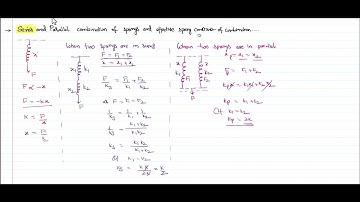 → Series and Parallel combination of springs and effective spring constant of combination...
F ∝ -x
F = -kx
K = F/x
x = F/k
When two springs are in series
F = F₁ = F₂
x = x₁ + x₂
F/ks = F₁/k₁ + F₂/k₂
as F = F₁ = F₂
1/ks = 1/k₁ + 1/k₂
ks = k₁k₂/k₁+k₂
If k₁ = k₂
When two springs are in parallel
x = x₁ = x₂
F = F₁ + F₂
kp = k₁ + k₂
If k₁ = k₂
kp = 2k